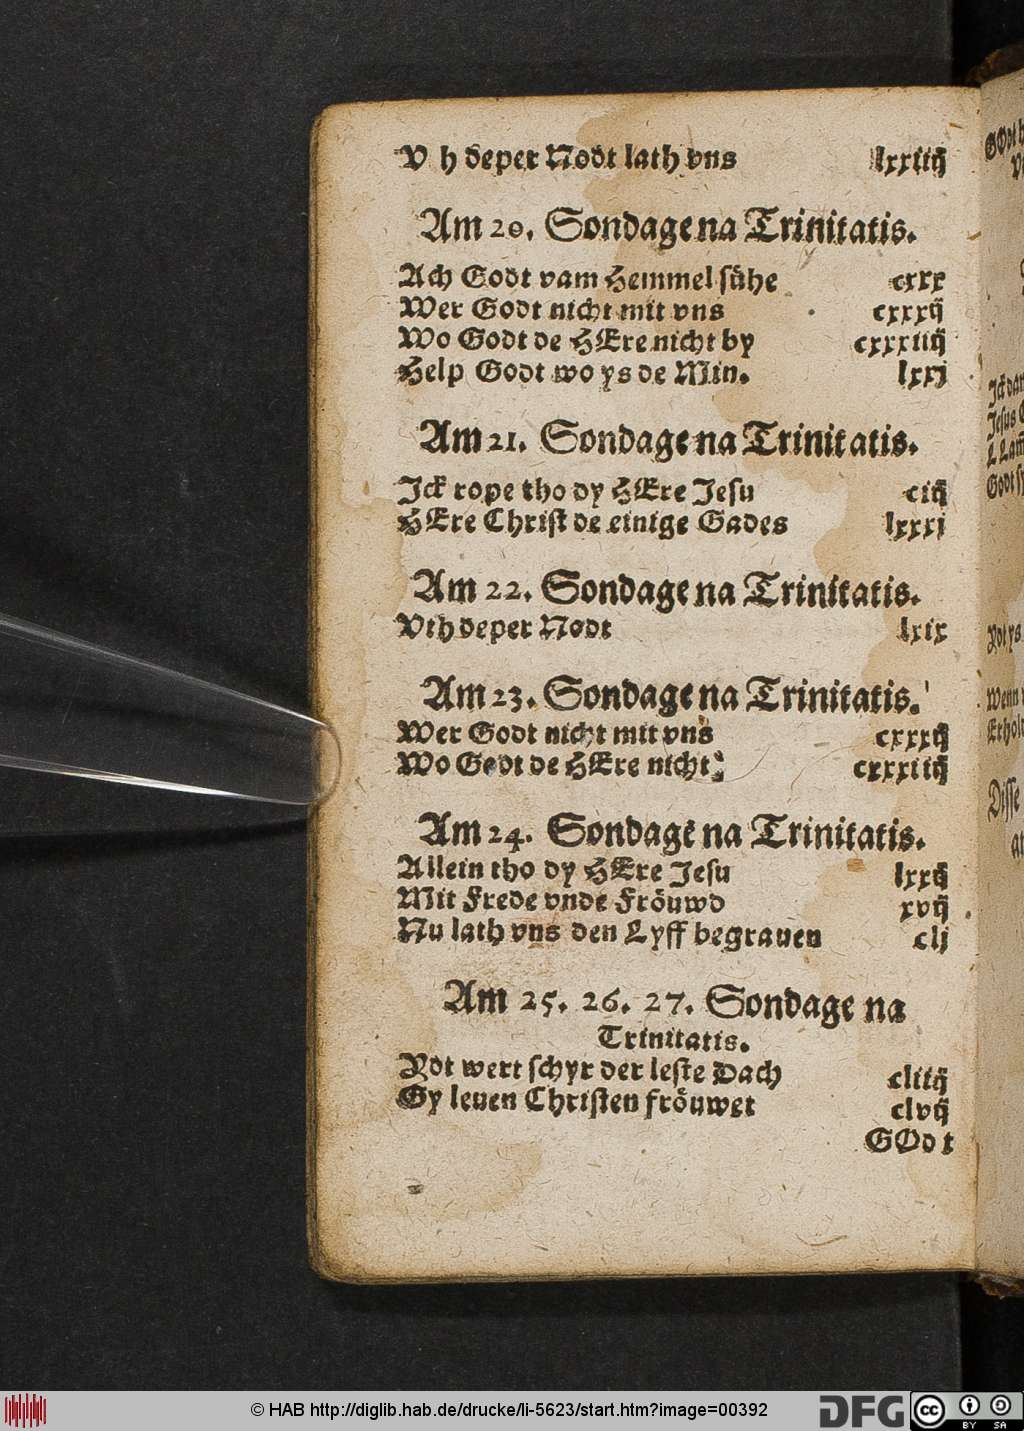 V h deper Nodt lath vns lxxiiij
Am 20. Sondage na Trinitatis.
Ach Godt vam Hemmel sühe cxxx
Wer Godt nicht mit vns cxxxij
Wo Godt de HEre nicht by cxxxiiij
Help Godt wo ys de Min. lxxj
Am 21. Sondage na Trinitatis.
Ick rope tho dy HEre Jesu ciij
HEre Christ de einige Gades lxxxj
Am 22. Sondage na Trinitatis.
Vth deper Nodt lxix
Am 23. Sondage na Trinitatis.
Wer Godt nicht mit vns cxxxij
Wo Godt de HEre nicht cxxxiiij
Am 24. Sondage na Trinitatis.
Allein tho dy HEre Jesu lxxij
Mit Frede vnde Fröuwd xvij
Nu lath vns den Lyff begrauen clj
Am 25. 26. 27. Sondage na
Trinitatis.
Ydt wert schyr der leste Dach cliiij
Gy leuen Christen fröuwet clvij
GOdt
© HAB http://diglib.hab.de/drucke/li-5623/start.htm?image=00392
DFG
cc BY SA